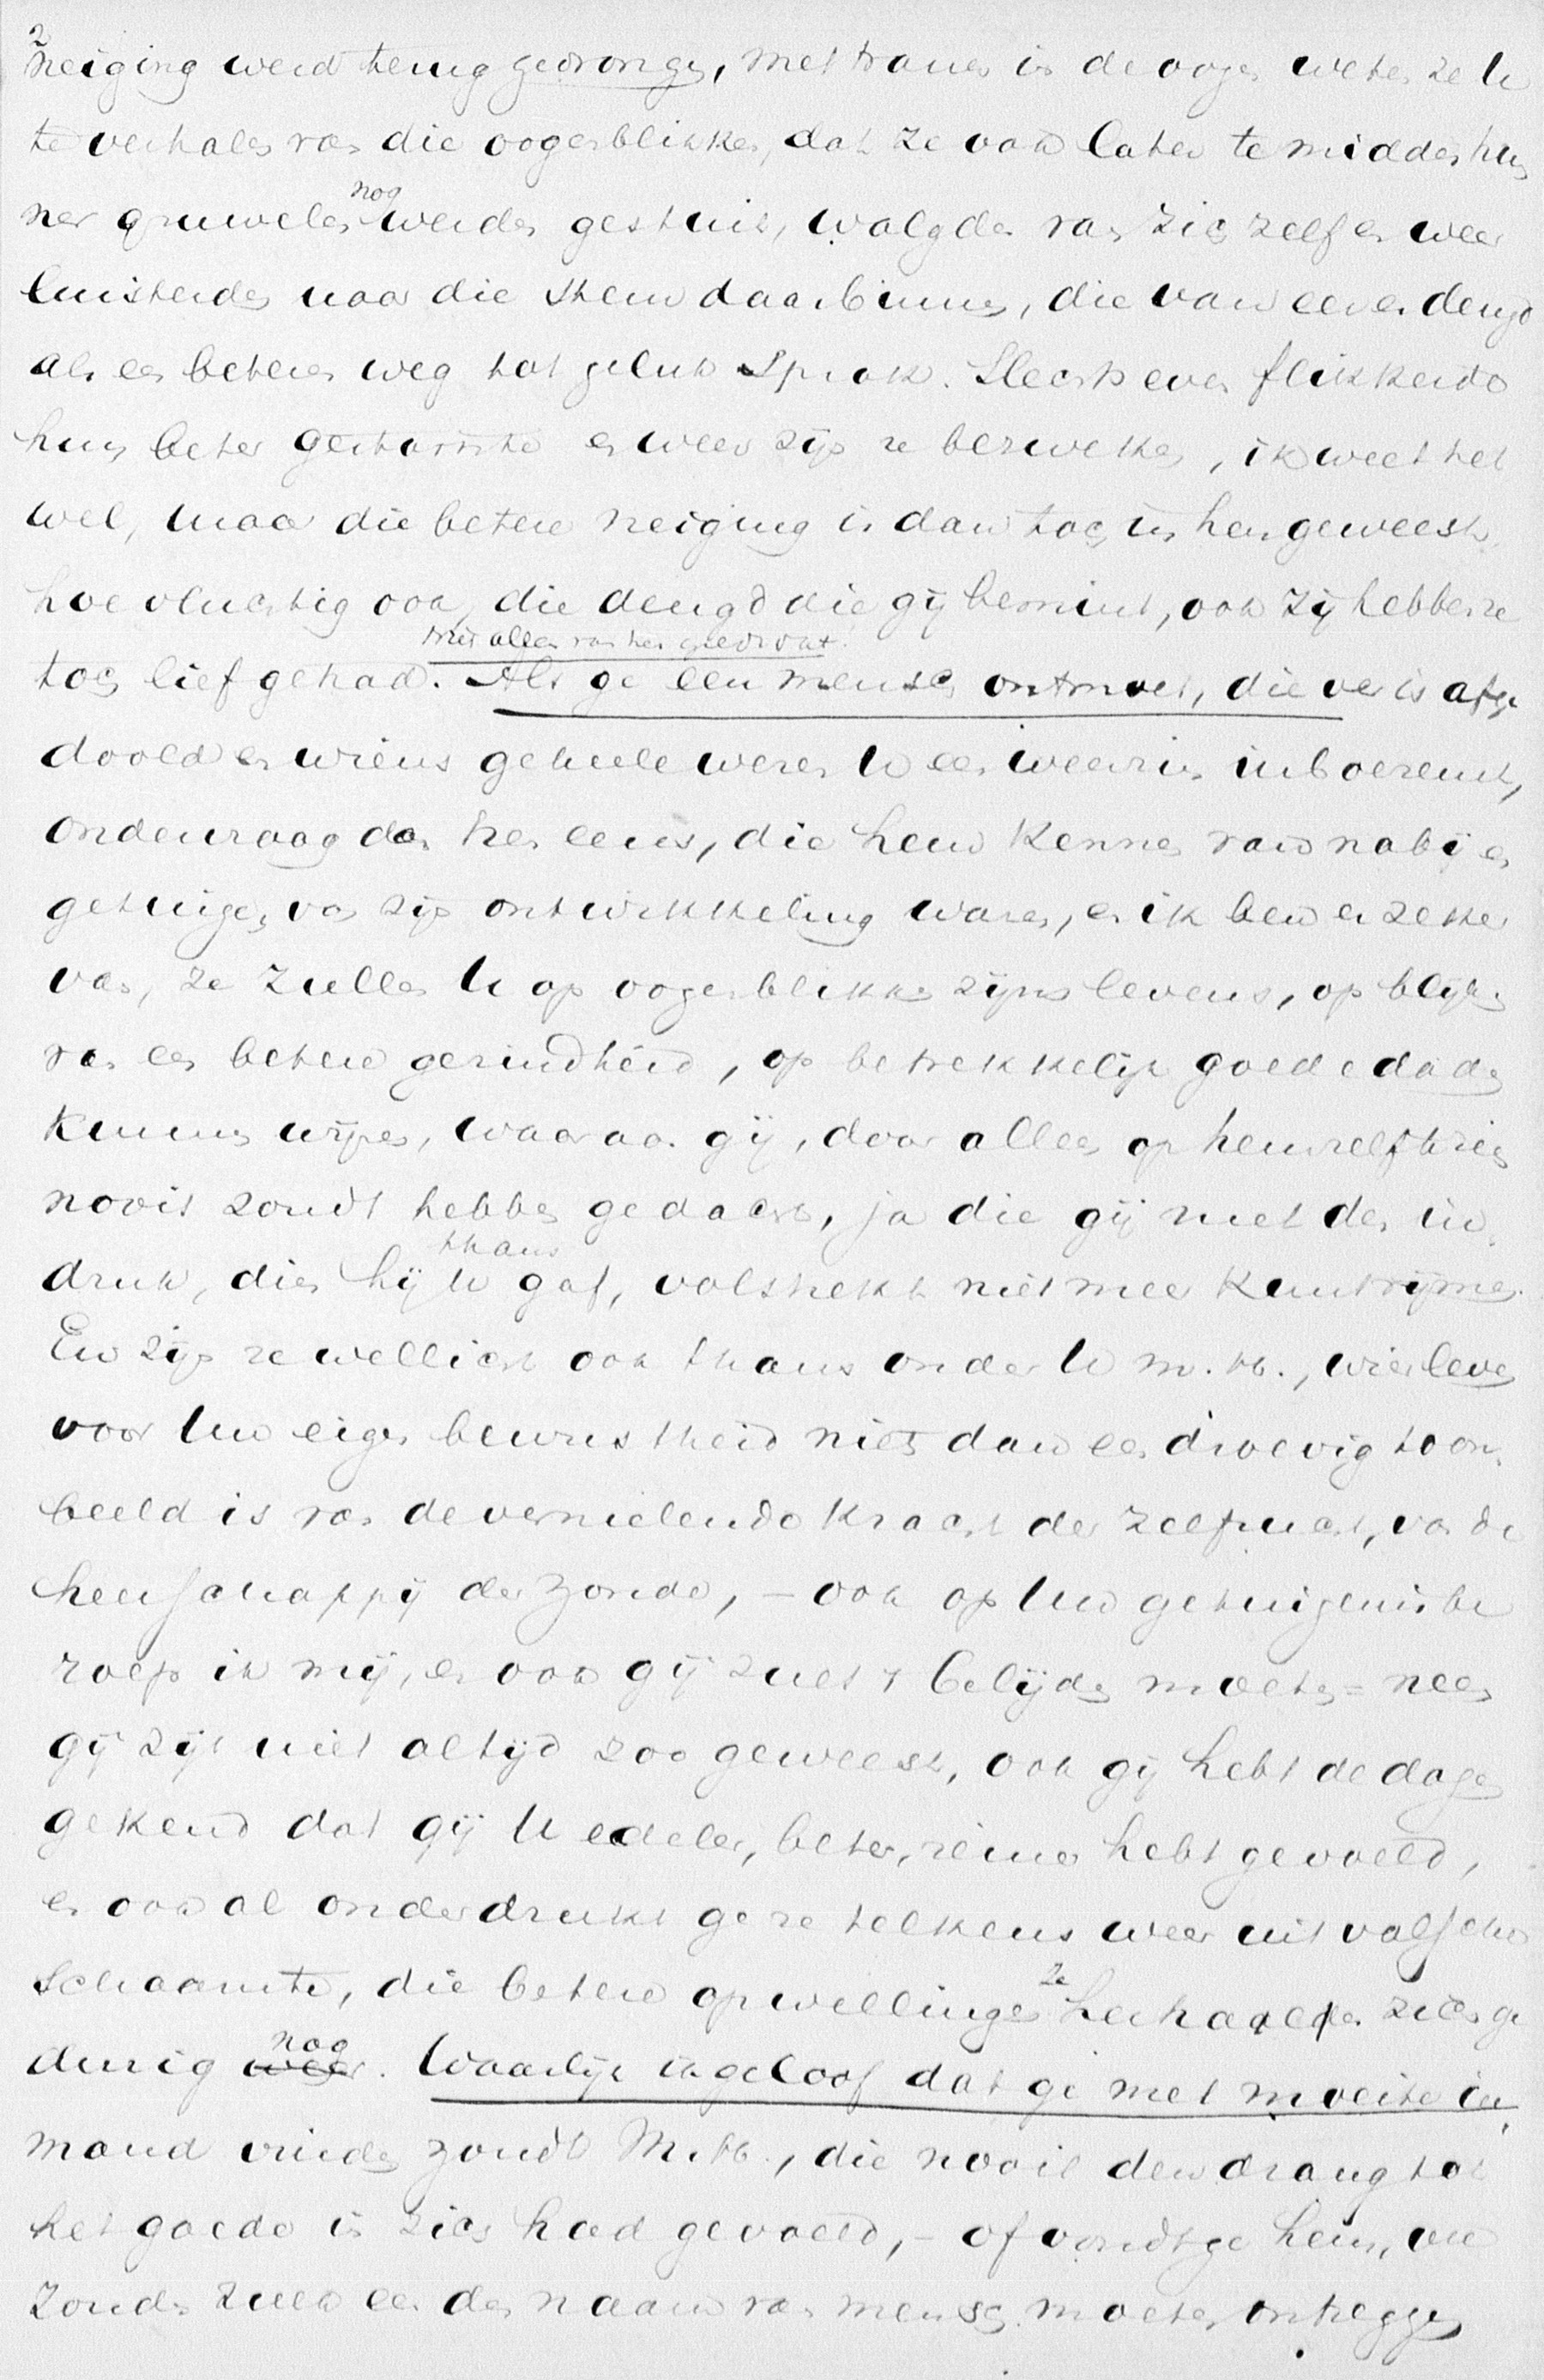 2
neiging werd terug gedrongen, met tranen in de oogen weten ze U
te verhalen van die oogenblikken, dat ze ook later te midden hun
ner gruwelen nog werden gestuit, walgden van zich zelf en weer
luisterden naar die stem daarbinnen, die van eer en deugd
als een beteren weg tot geluk sprak. Slechts even flikkerde
hun beter en weer zijn ze bezweken, ik weet het
wel, maar die betere neiging is dan toch in hen geweest
hoe vluchtig ook, die deugd die gij bemint, ook zij hebben ze
toch lief gehad. Als ge een mensch ontmoet, die ver is afge
doold en wiens geheele wezen U een weerzin inboezemt,
ondervraag dan hen eens, die hem kennen van nabij en
getuigen van zijn ontwikkeling waren, en ik ben er zeker
van, ze zullen U op oogenblikken zijns levens, op blijken
van een betere gezindheid, op betrekkelijk goede daden
kunnen wijzen, waaraan gij, door alleen op hemzelf te zien
nooit zoudt hebben gedacht, ja die gij met den in-
druk, dien hij U thans gaf, volstrekt niet meer kunt rijmen.
En zijn ze wellicht ook thans onder U m. H., wier leven
voor Uw eigen bewustheid niets dan een droevig toon-
beeld is van de vernielende kracht der zelfzucht, van de
heerschappij der zonde, – ook op Uw getuigenis be
roep ik mij, en ook gij zult 't belijden moeten = neen
gij zijt niet altijd zoo geweest, ook gij hebt de dagen
gekend dat gij U edeler, beter, reiner hebt gevoeld,
en ook al onderdrukt ge ze telkens weer uit valsche
schaamte, die betere opwellingen ze herhalen zich ge
durig nog. Waarlijk ik geloof dat ge met moeite ie-
mand vinden zoudt M. H., die nooit den drang tot
het goede in zich had gevoeld, – of vondt ge hem, we
zouden zulk een den naam van mensch moeten ontzeggen